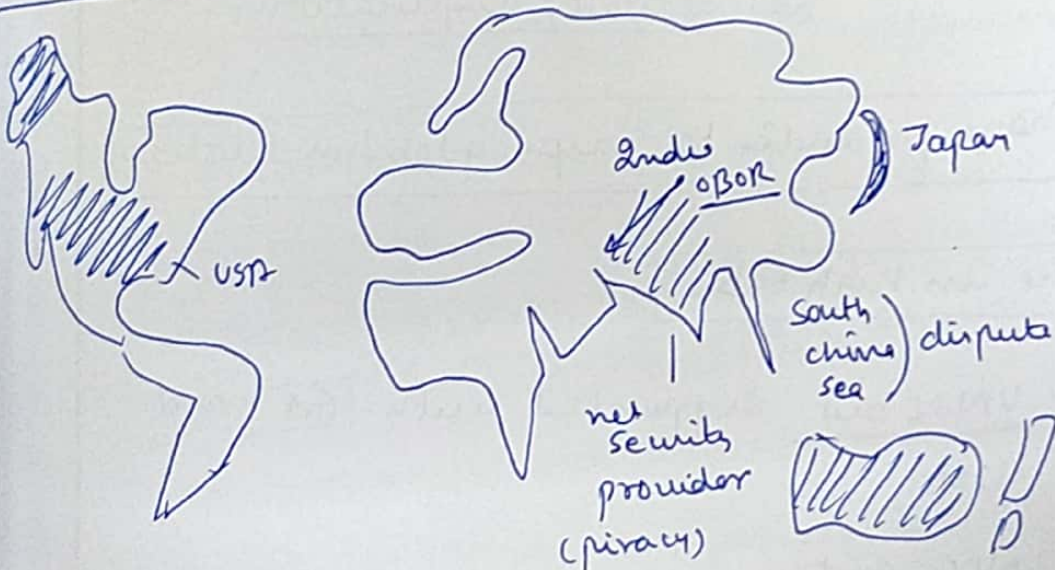 India
OBOR
Japan
USA
South
china
sea
dispute
net
security
provider
(piracy)